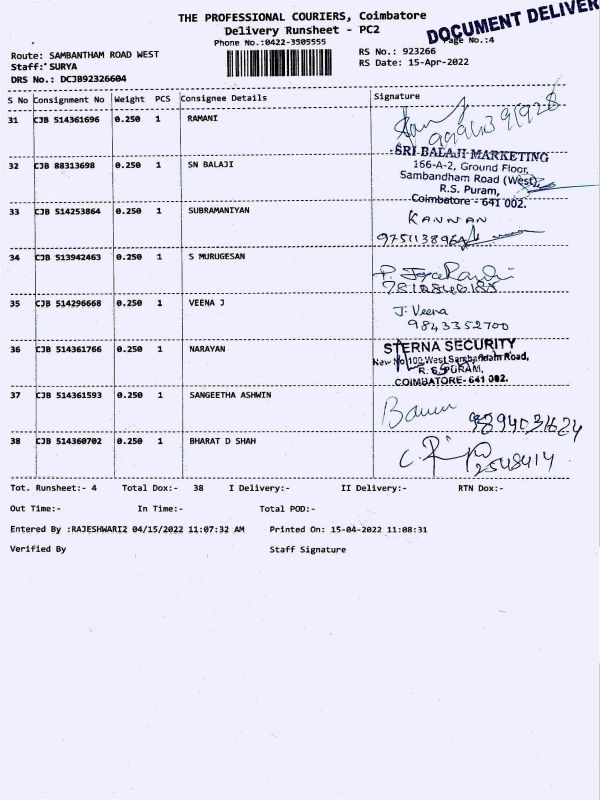 THE PROFESSIONAL COURIERS, Coimbatore
Delivery Runsheet - PC2
DOCUMENT DELIVER
Phone No.:0422-3505555
Page No.:4
Route: SAMBANTHAM ROAD WEST
RS No.: 923266
Staff: SURYA
RS Date: 15-Apr-2022
DRS No.: DCJB92326604
S No Consignment No Weight PCS Consignee Details Signature
31 CJB 514361696 0.250 1 RAMANI
32 CJB 88313698 0.250 1 SN BALAJI
SRI BALAJI MARKETING
166-A-2, Ground Floor,
Sambandham Road (West),
R.S. Puram,
Coimbatore - 641 002.
33 CJB 514253864 0.250 1 SUBRAMANIYAN
KANNAN
34 CJB 513942463 0.250 1 S MURUGESAN
35 CJB 514296668 0.250 1 VEENA J
J. Veena
9843352700
36 CJB 514361766 0.250 1 NARAYAN
STERNA SECURITY
New No 100, West Sambandam Road,
R.S. PURAM,
COIMBATORE- 641 002.
37 CJB 514361593 0.250 1 SANGEETHA ASHWIN
9894031624
38 CJB 514360702 0.250 1 BHARAT D SHAH
2548414
Tot. Runsheet:- 4 Total Dox:- 38 I Delivery:- II Delivery:- RTN Dox:-
Out Time:- In Time:- Total POD:-
Entered By :RAJESHWARI2 04/15/2022 11:07:32 AM Printed On: 15-04-2022 11:08:31
Verified By Staff Signature